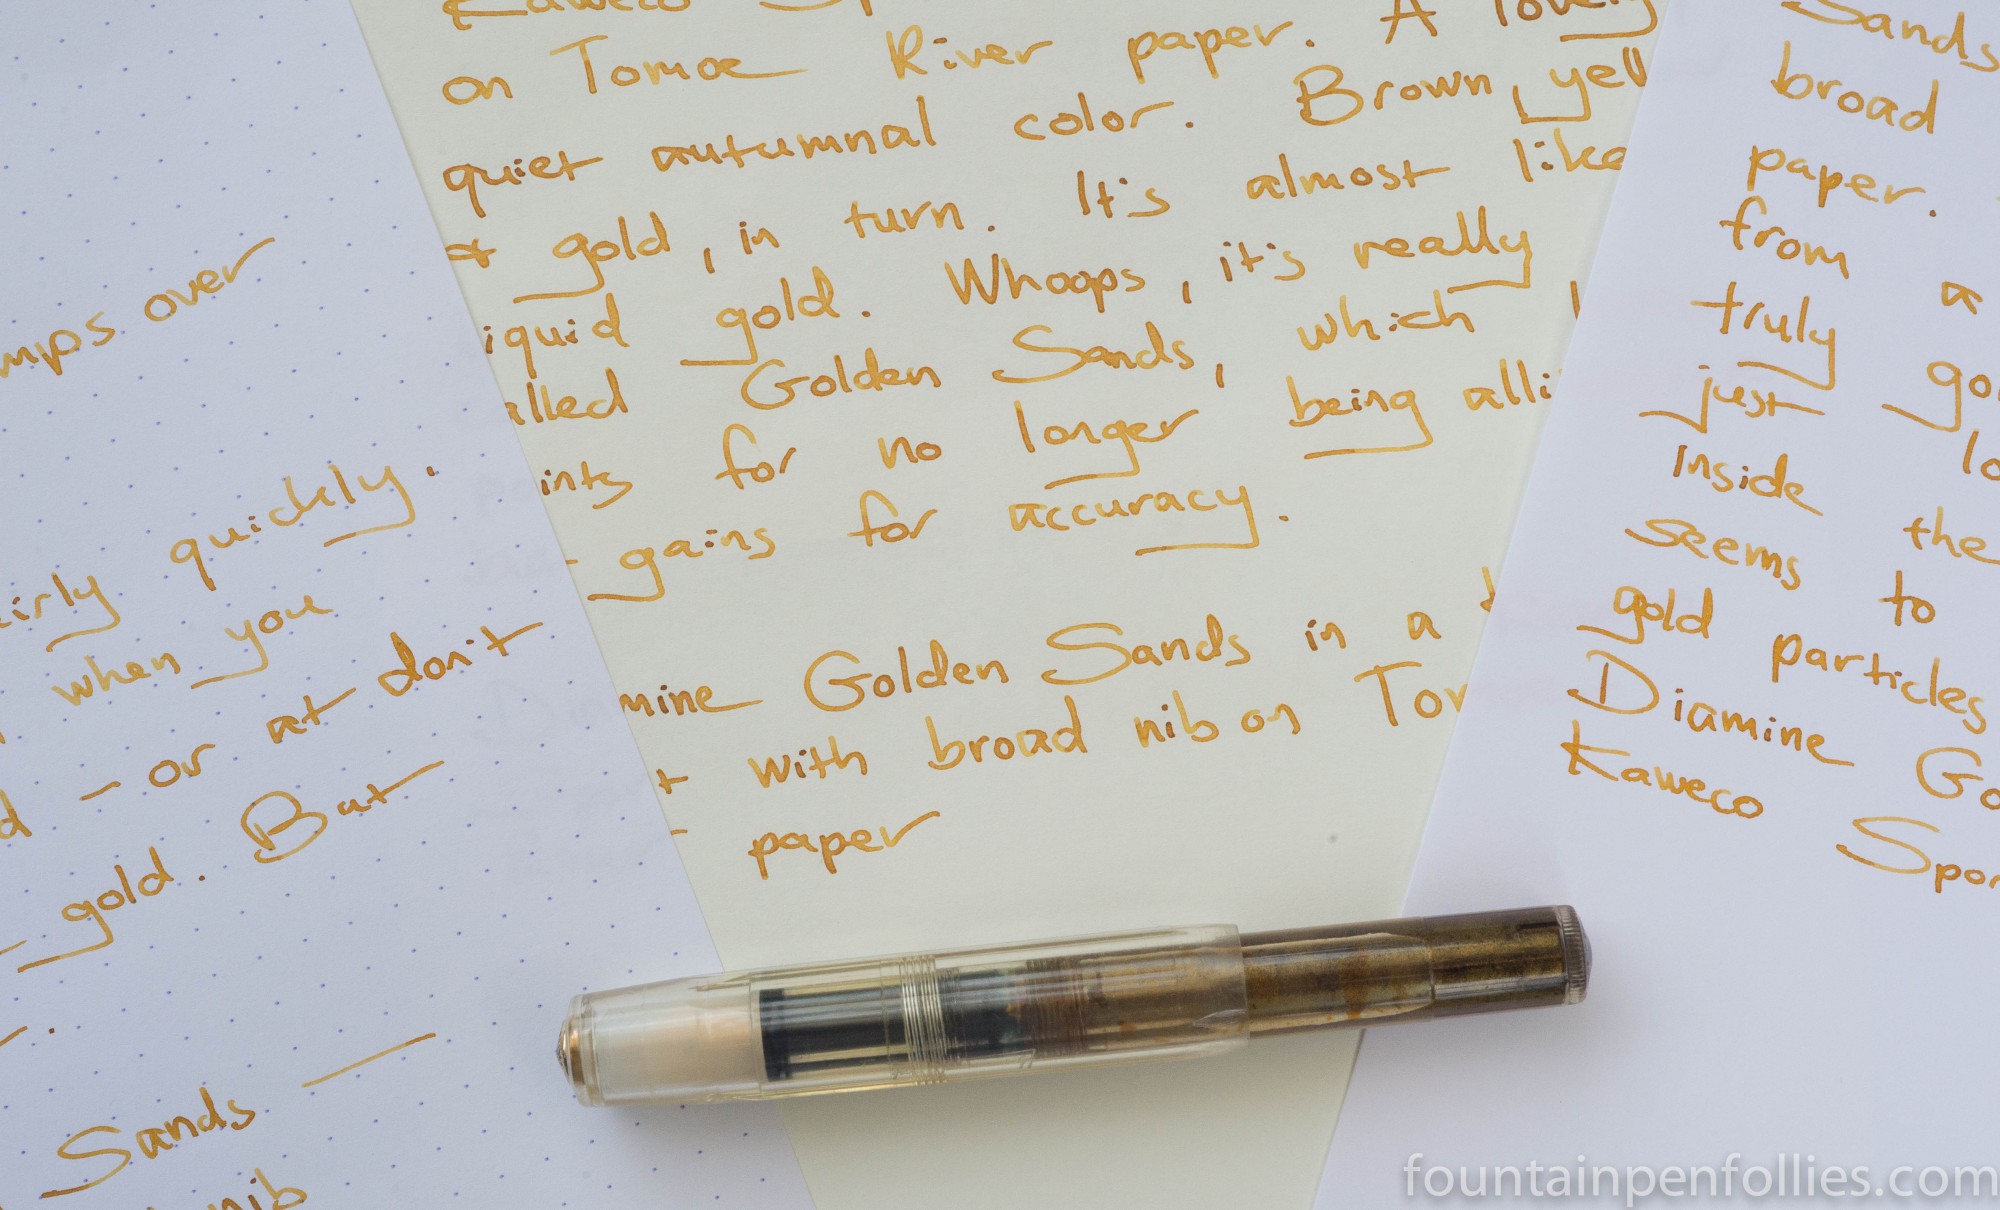 mps over
quickly.
when you
- or at don't
gold. But
Sands -
nib
Kaweco
on Tomoe River paper. A lovely
quiet autumnal color. Brown, yell
+ gold, in turn. It's almost like
iquid gold. Whoops, it's really
alled Golden Sands, which
ints for no longer being alli
- gains for accuracy.
mine Golden Sands in a
t with broad nib on Tom
- paper
Sands
broad
paper.
from a
truly go
just lo
inside the
seems to
gold particles
Diamine Go
Kaweco Spor
fountainpenfollies.com